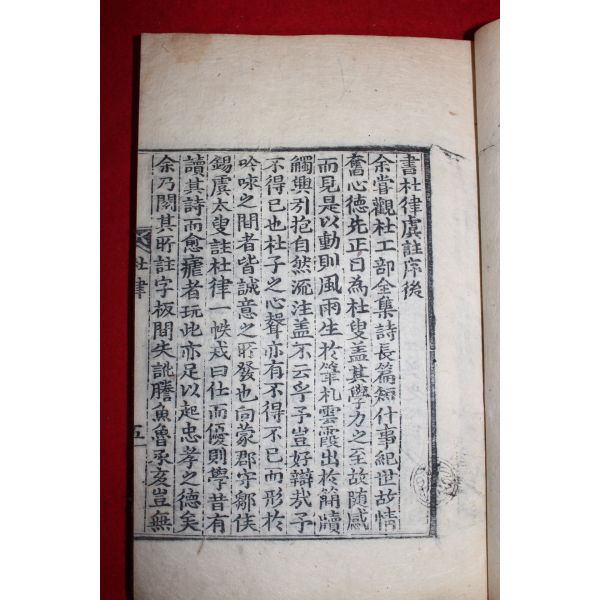 書杜律虞註序後
余嘗觀杜工部全集詩長篇短什事紀世故情
奮心德先正曰為杜叟盖其學力之至故随感
而見是以動則風雨生於筆札雲霞出於簡牘
觸興引抱自然流注盖不云乎予豈好辯㢤予
不得已也杜子之心聲亦有不得不已而形於
吟咏之間者皆誠意之所發也向蒙郡守鄒侯
錫虞太叟註杜律一帙戒曰仕而優則學昔有
讀其詩而愈瘧者玩此亦足以起忠孝之德矣
余乃閱其所註字板間失訛謄魚魯承亥豈無
杜律
五